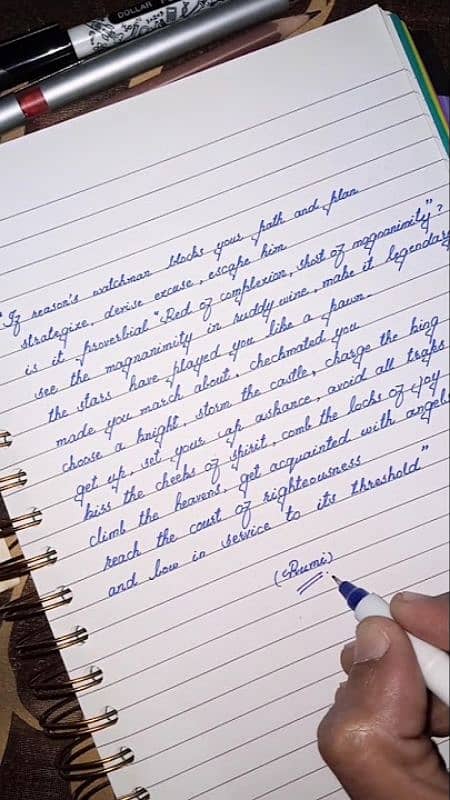 DOLLAR
"If reason's watchman blocks your path and plan
strategize, devise excuse, escape him
is it proverbial "Red of complexion, short of magnanimity"?
see the magnanimity in ruddy wine, make it legendary
the stars have played you like a pawn
made you march about, checkmated you
choose a knight, storm the castle, charge the king
get up, set your cap askance, avoid all traps
kiss the cheeks of spirit, comb the locks of joy
climb the heavens, get acquainted with angels
reach the court of righteousness
and bow in service to its threshold"
(Rumi)